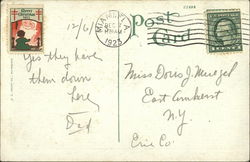 Merry Christmas
12/6/
MIAMI, FLA.
DEC 6
1923
Post Card
Yes they have
them down
here
Dad
Miss Doris J. Muegel
East Amherst
N.Y.
Erie Co.